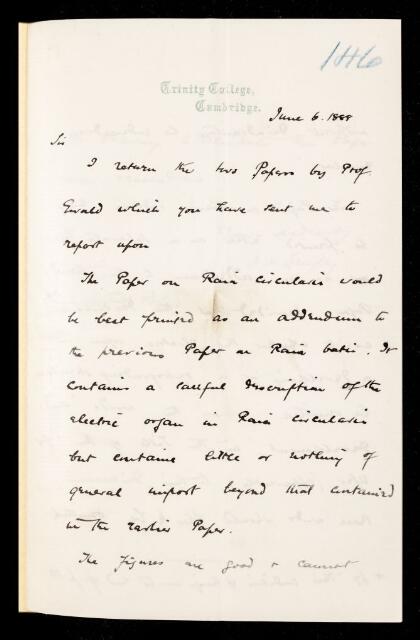 1446
Trinity College,
Cambridge.
June 6. 1888
Sir
I return the two Papers by Prof
Ewald which you have sent me to
report upon
The Paper on Raia circularis would
be best printed as an addendum to
the previous Paper on Raia batis. It
contains a careful description of the
electric organ in Raia circularis
but contains little or nothing of
general import beyond that contained
in the earlier Paper.
The figures are good & cannot